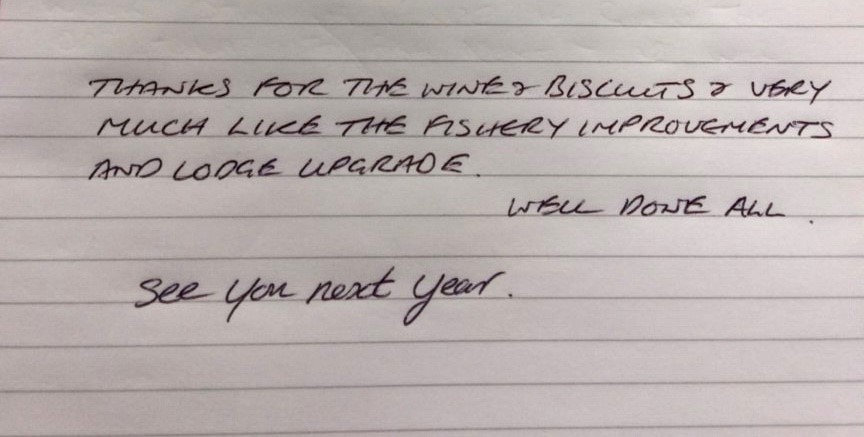 THANKS FOR THE WINE & BISCUITS & VERY
MUCH LIKE THE FISHERY IMPROVEMENTS
AND LODGE UPGRADE.
WELL DONE ALL.
See you next year.